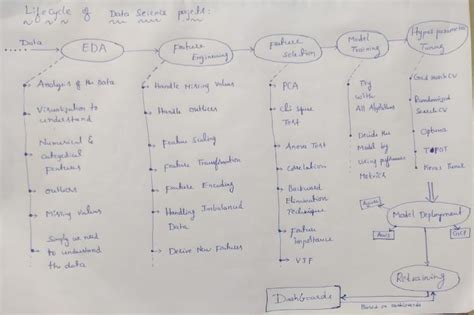 Lifecycle of Data Science projects:
Data
EDA
Feature
Engineering
Feature
Selection
Model
Training
Hyperparameter
Tuning
Analysis of the Data
Visualization to
understand
Numerical &
categorical
features
outliers
Missing values
Simply we need
to understand
the data
Handle Missing Values
Handle Outliers
Feature Scaling
Feature Transformation
Feature Encoding
Handling Imbalanced
Data
Derive New Features
PCA
Chi square
Test
Anova Test
Correlation
Backward
Elimination
Technique
Feature
Importance
VIF
Try
with
All Algorithms
Decide the
Model by
using performance
Metrics
Grid Search CV
Randomized
Search CV
Optuna
TPOT
Azure
Model Deployment
AWS
GCP
Retraining
Based on